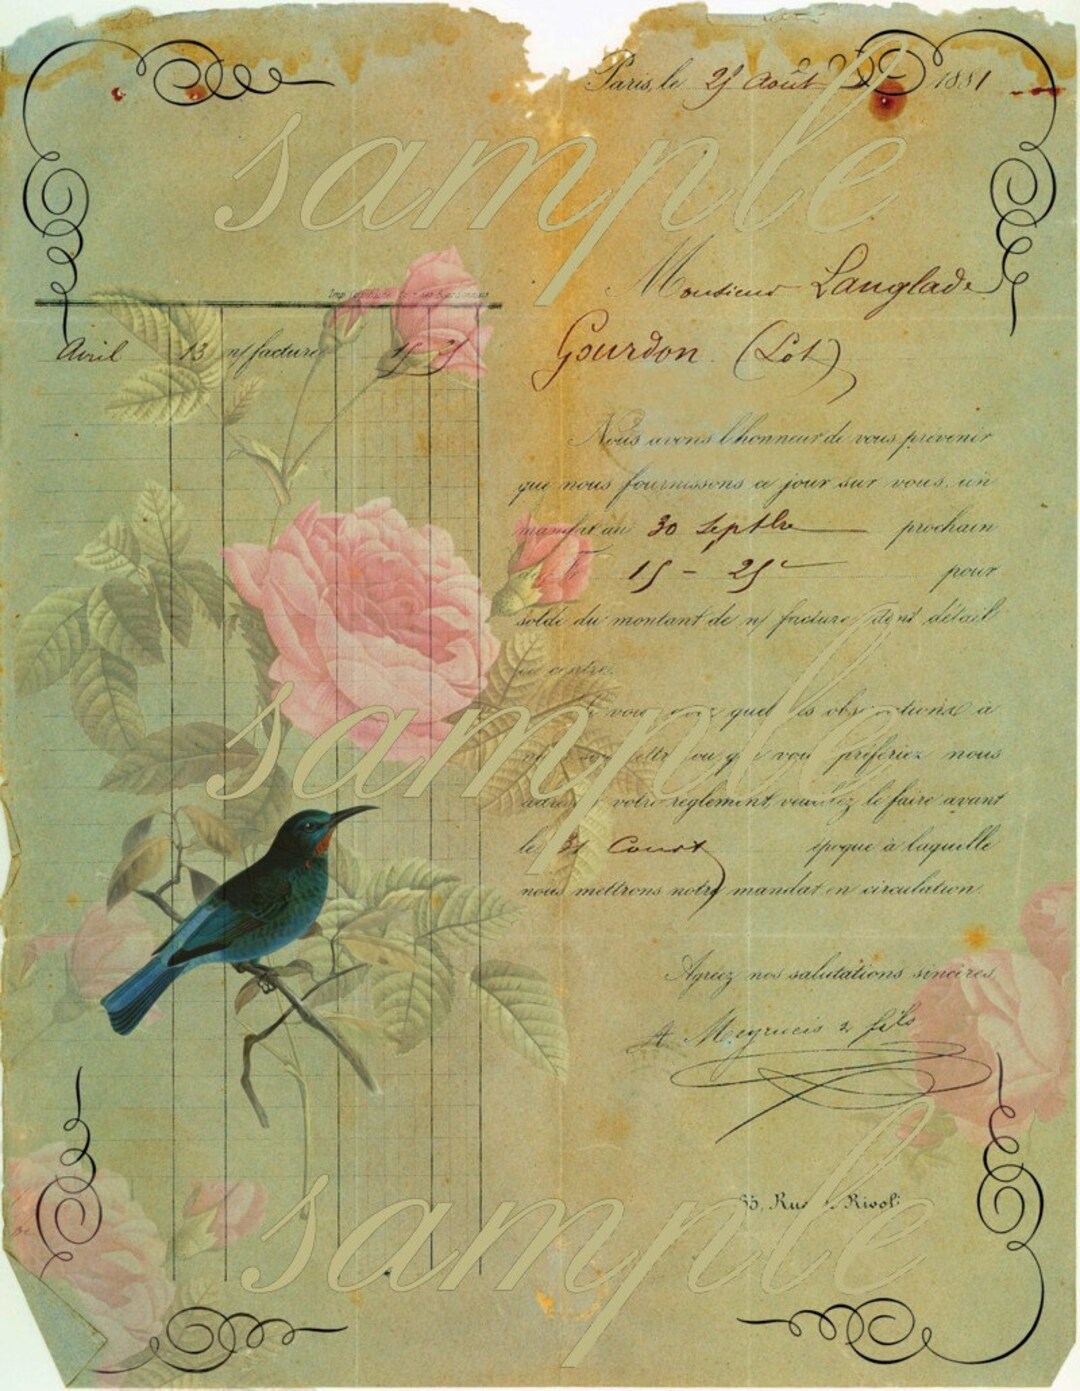 Paris, le 25 Août 1881
sample
Monsieur Langlade
Gourdon (Lot)
Avril 13 n/ facture 15 25
Nous avons l'honneur de vous prévenir
que nous fournissons ce jour sur vous, un
mandat au 30 Septbre prochain
15 - 25 c pour
solde du montant de n/ facture dont détail
ci contre.
sample
vous quelques observations à
ou que vous préfériez nous
votre règlement, veuillez le faire avant
le 31 Court époque à laquelle
nous mettrons notre mandat en circulation.
Agréez nos salutations sincères,
A Meyrueis & fils
Rue Rivoli
sample